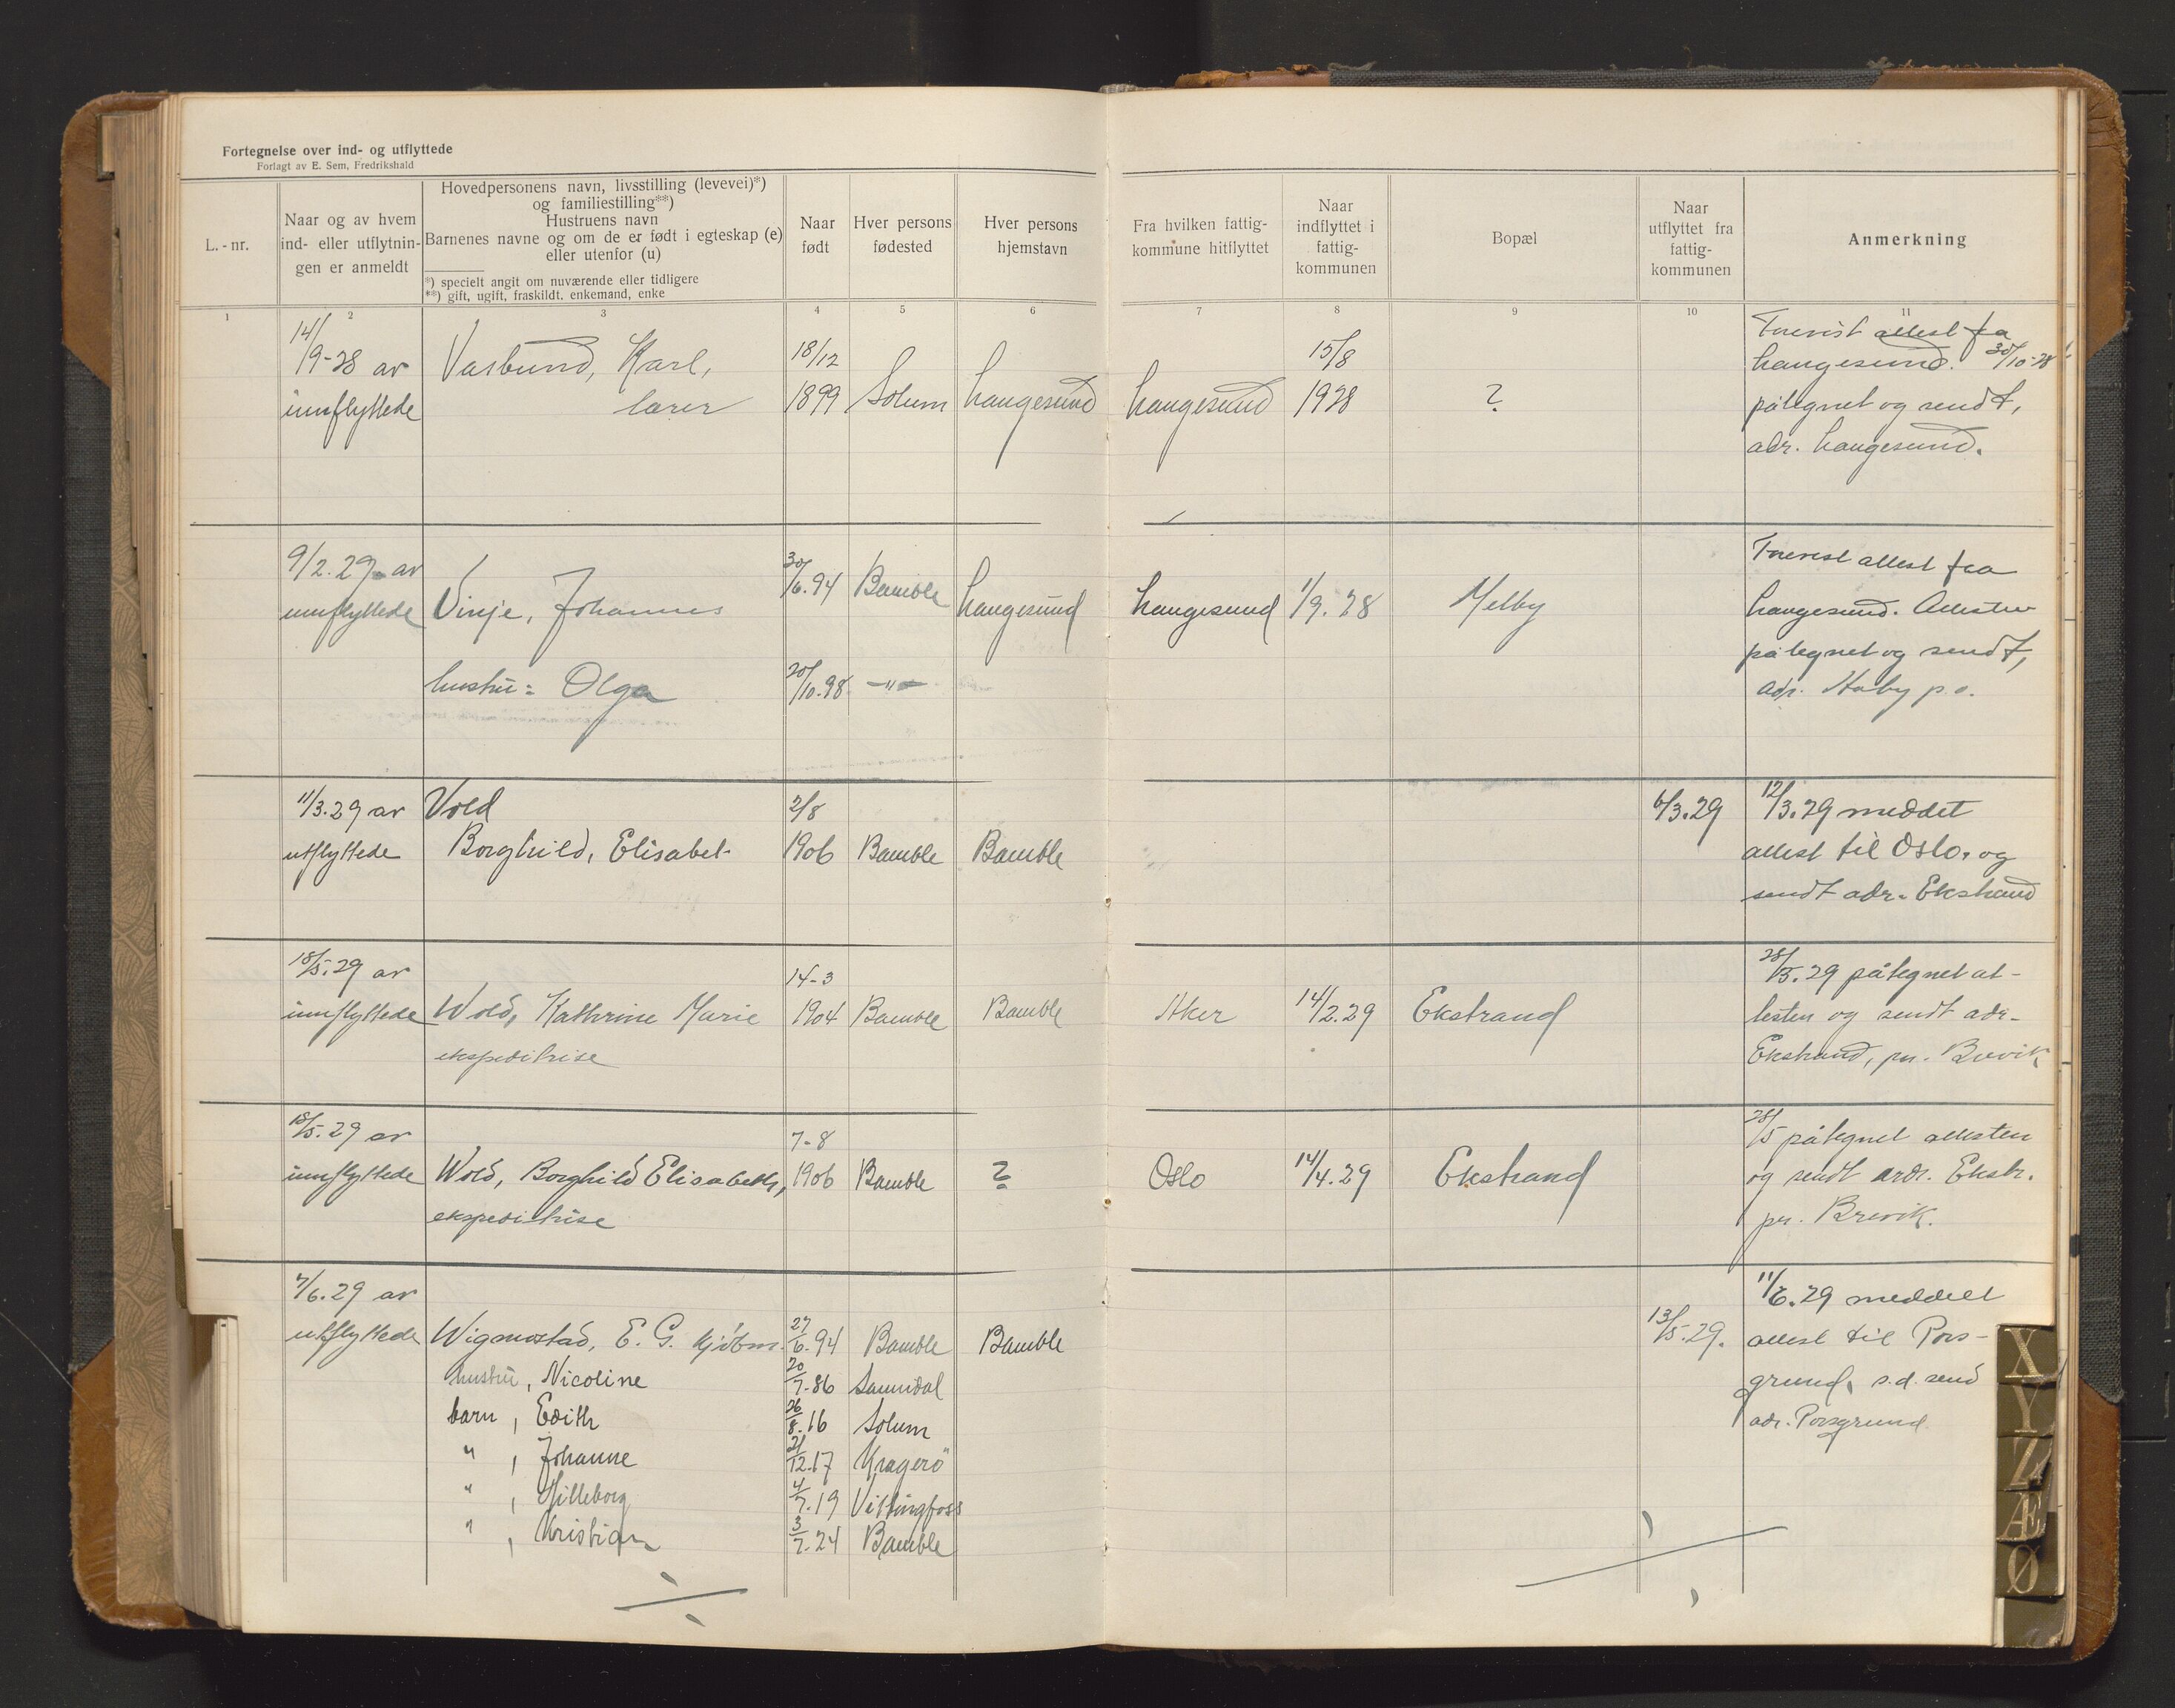 Fortegnelse over ind- og utflyttede
Forlagt av E. Sem, Fredrikshald
L.-nr.
Naar og av hvem
ind- eller utflytnin-
gen er anmeldt
Hovedpersonens navn, livsstilling (levevei)*)
og familiestilling**)
Hustruens navn
Barnenes navne og om de er født i egteskap (e)
eller utenfor (u)
*) specielt angit om nuværende eller tidligere
**) gift, ugift, fraskildt, enkemand, enke
Naar
født
Hver persons
fødested
Hver persons
hjemstavn
Fra hvilken fattig-
kommune hitflyttet
Naar
indflyttet i
fattig-
kommunen
Bopæl
Naar
utflyttet fra
fattig-
kommunen
Anmerkning
1 2 3 4 5 6 7 8 9 10 11
14/9-28 av
innflyttede
Karl,
lærer
18/12
1899
Solum
Langesund
Langesund
15/8
1928
?
Forevist attest fra
Langesund. 30/10-28
påtegnet og sendt,
adr. Langesund.
9/2.29 av
innflyttede
Vinje, Johannes
30/6.94
Bamble
Langesund
Langesund
1/9.28
Melby
Forevist attest fra
Langesund. Attesten
påtegnet og sendt,
adr. p.o.
hustru: Olga
20/10.98
—"—
11/3.29 av
utflyttede
Vold
Borghild, Elisabet
2/8
1906
Bamble
Bamble
6/3.29
12/3.29 meddelt
attest til Oslo, og
sendt adr. Ekstrand
18/5.29 av
innflyttede
Wold, Kathrine Marie
ekspeditrise
14-3
1904
Bamble
Bamble
Aker
14/2.29
Ekstrand
28/5.29 påtegnet at-
testen og sendt adr.
Ekstrand, pr. Brevik
18/5.29 av
innflyttede
Wold, Borghild Elisabeth,
ekspeditrise
7-8
1906
Bamble
?
Oslo
14/4.29
Ekstrand
28/5 påtegnet attesten
og sendt adr. Ekstr.
pr. Brevik.
7/6.29 av
utflyttede
Wigmostad, E. G. kjöbm.
27/6.94
Bamble
Bamble
13/5.29.
11/6.29 meddelt
attest til Pors-
grund, s.d. send
adr. Porsgrund
hustru, Nicoline
20/7.86
Sannidal
barn, Edith
26/8.16
Solum
" , Johanne
21/12.17
Kragerö
" , Hilleborg
4/7.19
Vittingfoss
" , Kristian
3/7.24
Bamble
X
Y
Z
Æ
Ø